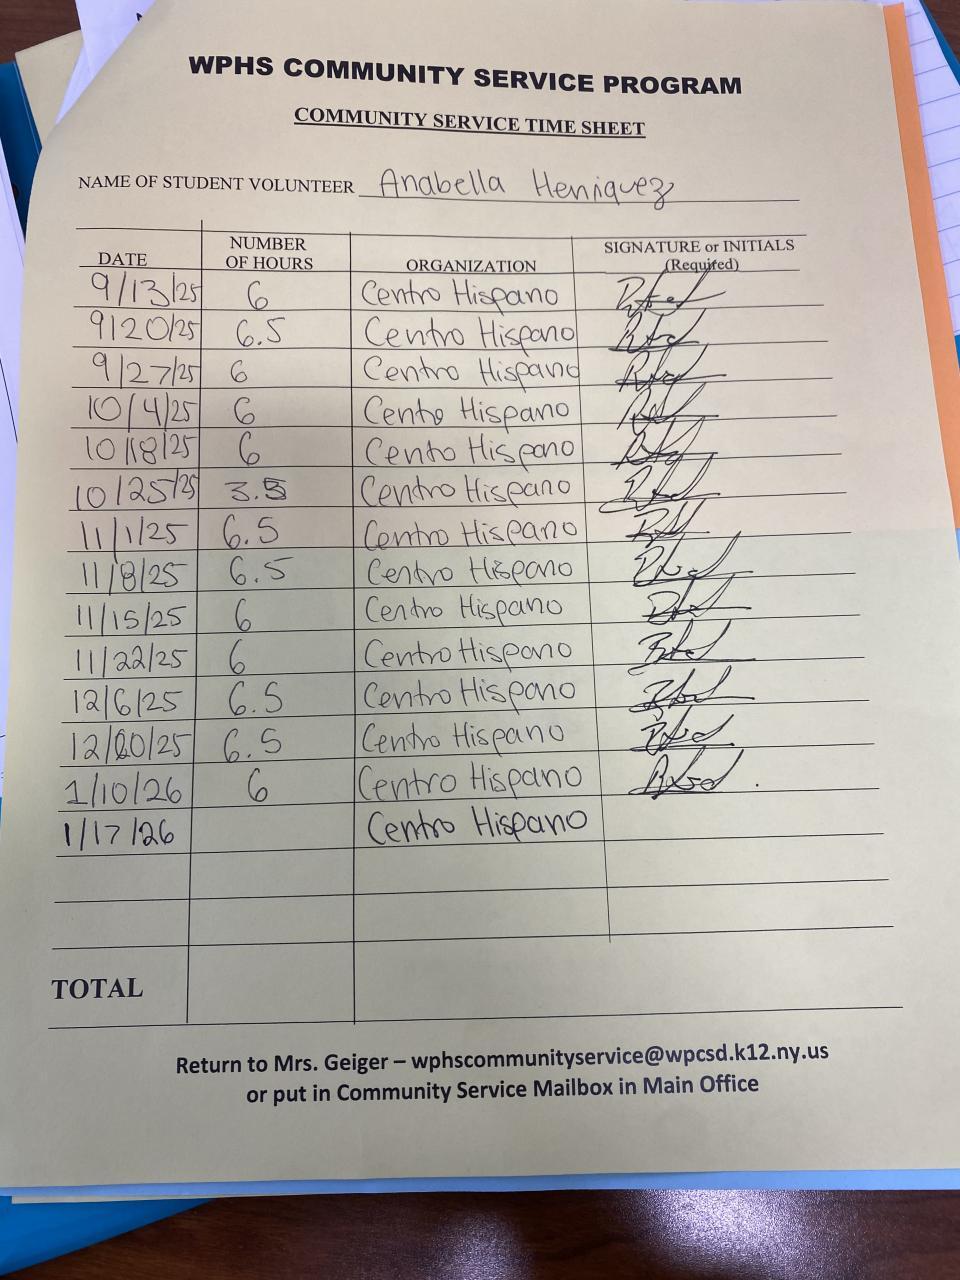 WPHS COMMUNITY SERVICE PROGRAM
COMMUNITY SERVICE TIME SHEET
NAME OF STUDENT VOLUNTEER Anabella Henriquez
DATE NUMBER OF HOURS ORGANIZATION SIGNATURE or INITIALS (Required)
9/13/25 6 Centro Hispano
9/20/25 6.5 Centro Hispano
9/27/25 6 Centro Hispano
10/4/25 6 Centro Hispano
10/18/25 6 Centro Hispano
10/25/25 3.5 Centro Hispano
11/1/25 6.5 Centro Hispano
11/8/25 6.5 Centro Hispano
11/15/25 6 Centro Hispano
11/22/25 6 Centro Hispano
12/6/25 6.5 Centro Hispano
12/20/25 6.5 Centro Hispano
1/10/26 6 Centro Hispano
1/17/26 Centro Hispano
TOTAL
Return to Mrs. Geiger – wphscommunityservice@wpcsd.k12.ny.us
or put in Community Service Mailbox in Main Office